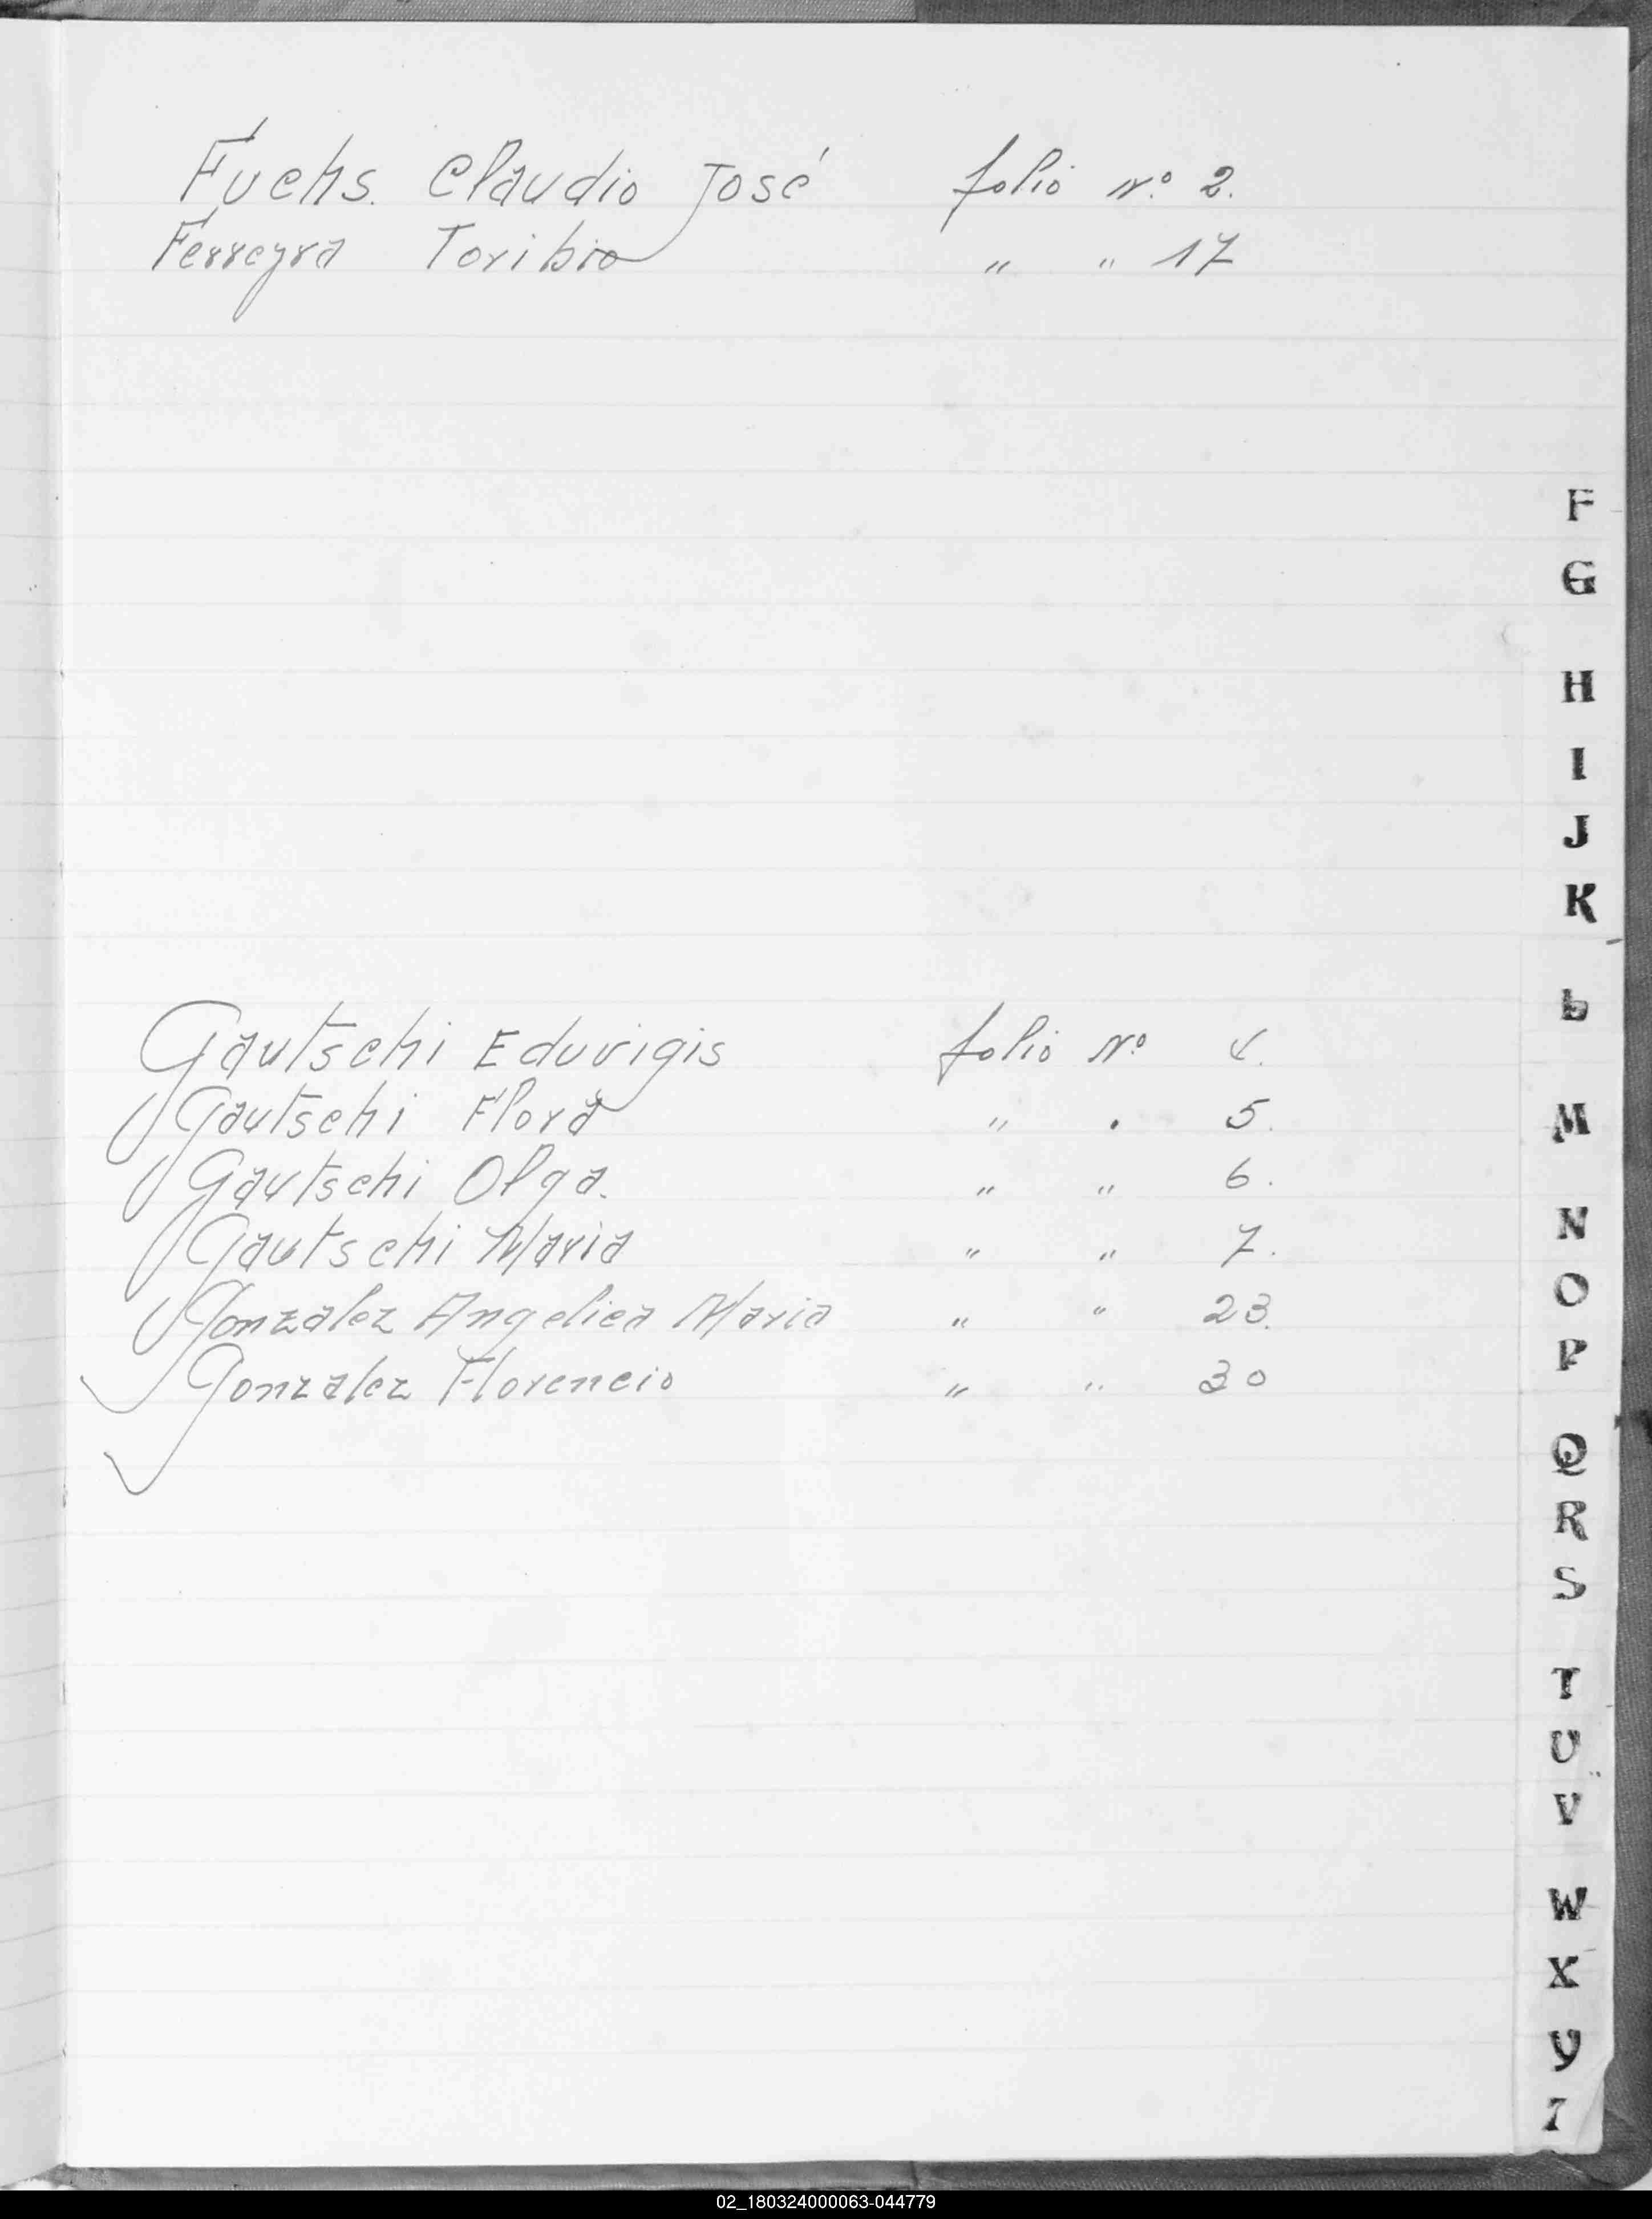 Fuchs. Claudio José folio nº 2.
Ferreyra Toribio " " 17
Gautschi Eduvigis folio Nº 4.
Gautschi Flora " . 5.
Gautschi Olga. " " 6.
Gautschi Maria " " 7.
Gonzalez Angelica Maria " " 23.
Gonzalez Florencio " " 30
F
G
H
I
J
K
L
M
N
O
P
Q
R
S
T
U
V
W
X
Y
Z
02_180324000063-044779